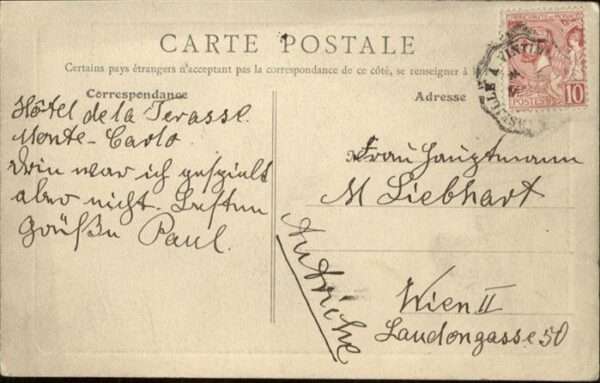 CARTE POSTALE
Certains pays étrangers n'acceptant pas la correspondance de ce côté, se renseigner à
Correspondance
Adresse
Hôtel de la Terasse
Monte-Carlo
Drin war ich gespielt
aber nicht. Besten
Grüßen Paul.
Frau Hauptmann
M Liebhart
Autriche
Wien II
Laudongasse 50
POSTES
10